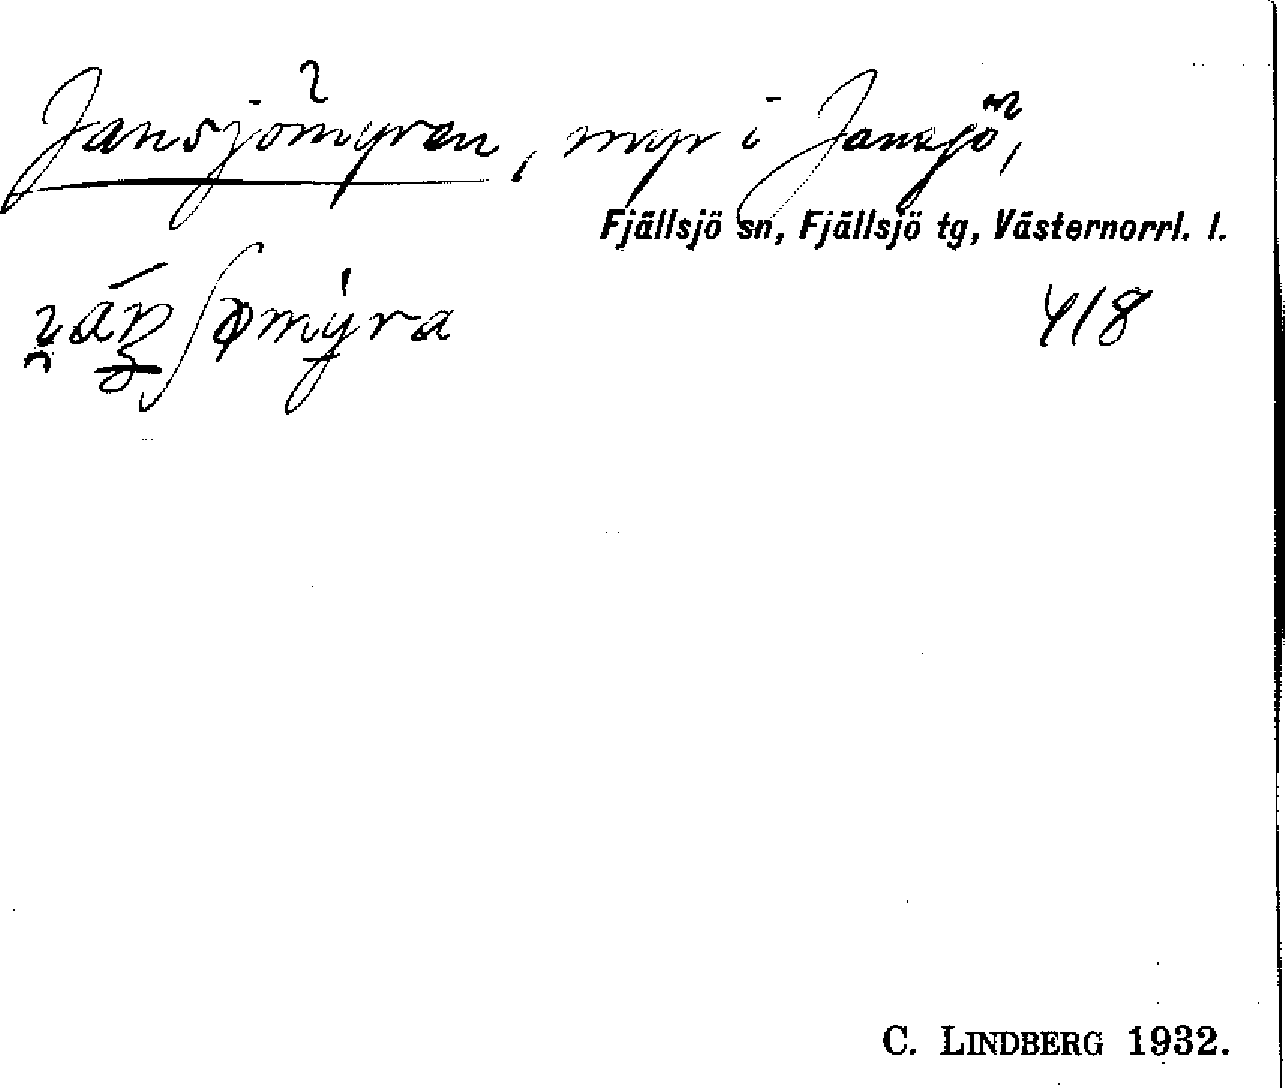 Jansjömyren, myr i Jansjö,
Fjällsjö sn, Fjällsjö tg, Västernorrl. l.
418
C. LINDBERG 1932.